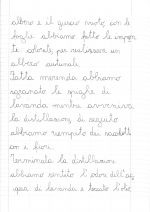 albero e il guscio vuoto, con le
foglie abbiamo fatto le impron
te colorate, per realizzare un
albero autunnale.
Fatta merenda abbiamo
sgranato le spighe di
lavanda mentre avveniva
la distillazione, di seguito
abbiamo riempito dei sacchetti
con e fiori.
Terminata la distillazione
abbiamo sentito l'odore dell'ac
qua di lavanda e toccato l'olio